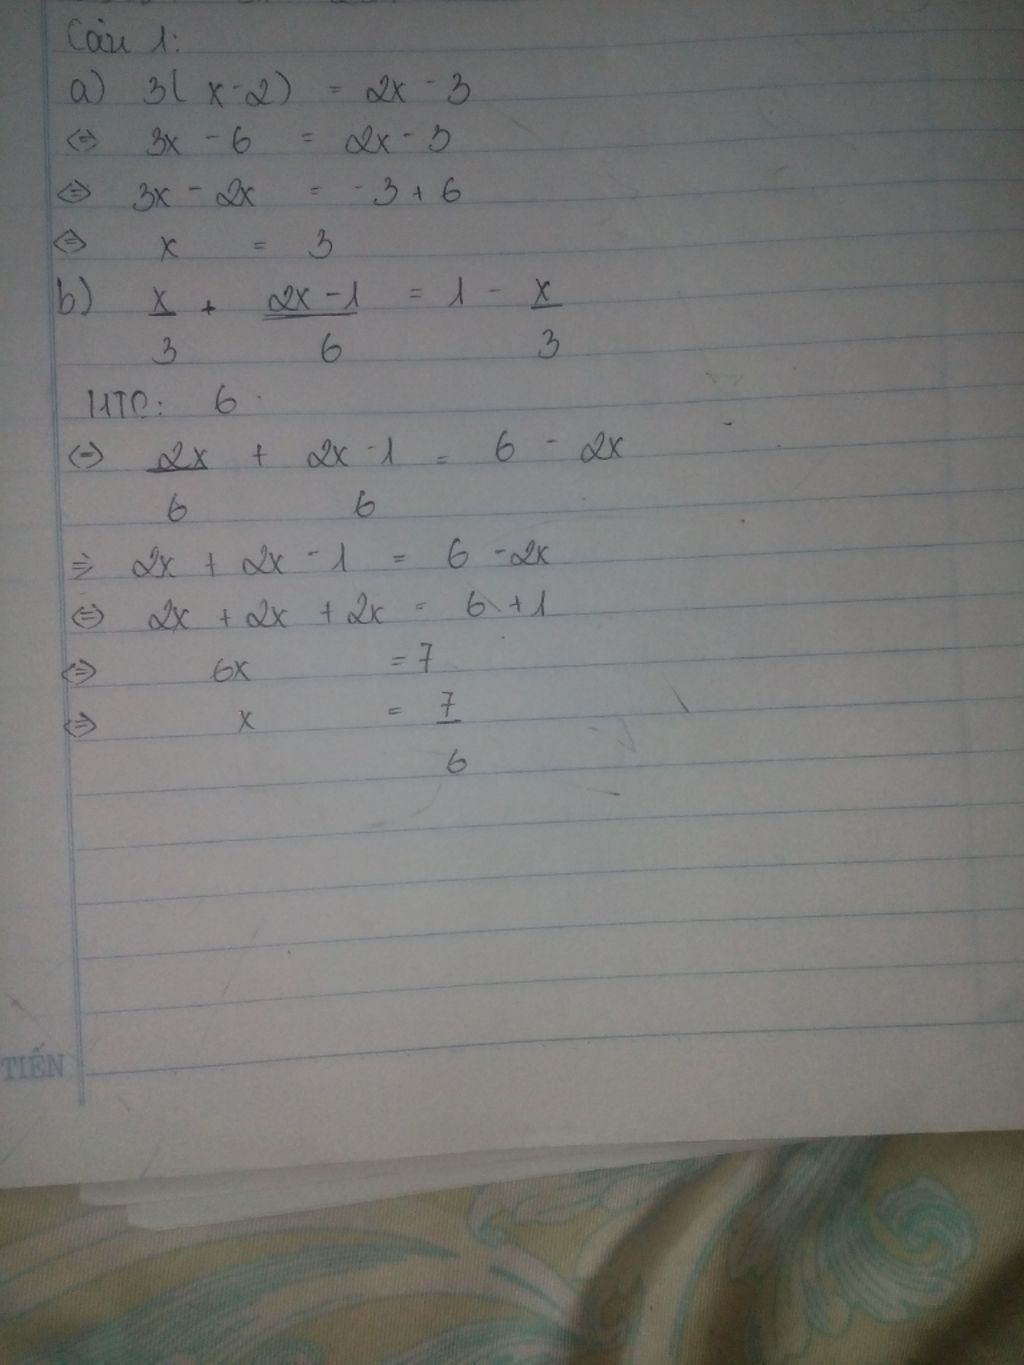 Câu 1:
a) 3( x - 2) = 2x - 3
⇔ 3x - 6 = 2x - 3
⇔ 3x - 2x = -3 + 6
⇔ x = 3
b) x + 2x - 1 = 1 - x
3 6 3
MTC: 6
⇔ 2x + 2x - 1 = 6 - 2x
6 6
⇒ 2x + 2x - 1 = 6 - 2x
⇔ 2x + 2x + 2x = 6 + 1
⇔ 6x = 7
⇔ x = 7
6
TIẾN